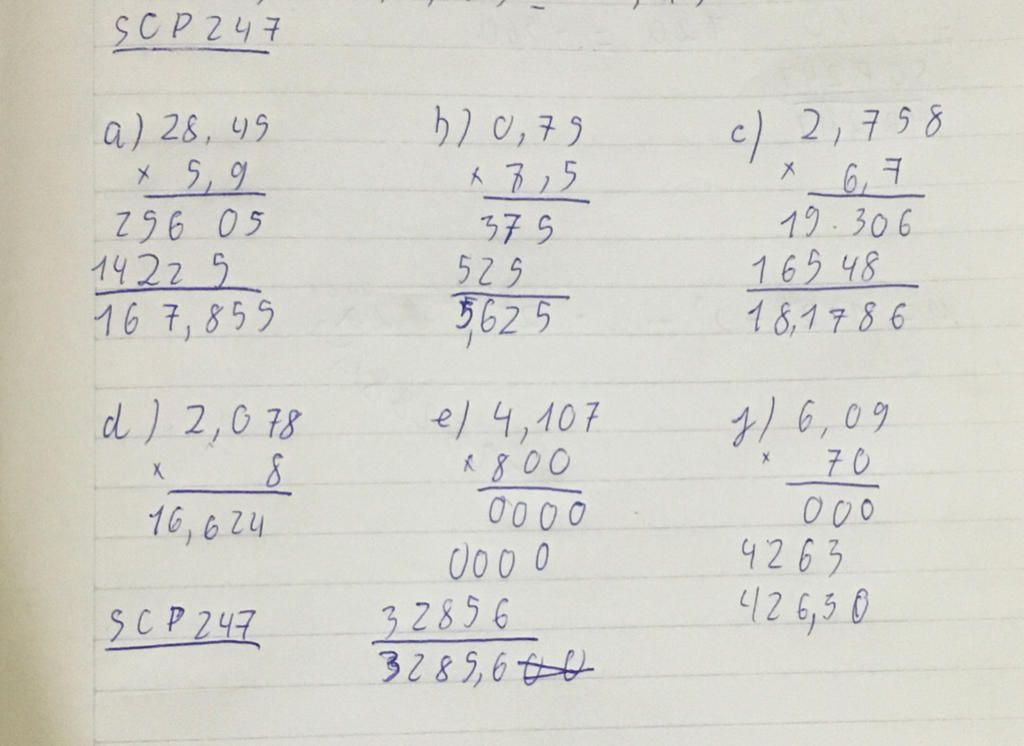 SCP247
a) 28,45
× 5,9
256 05
1422 5
167,855
b) 0,75
× 7,5
375
525
5,625
c) 2,758
× 6,7
19.306
16548
18,1786
d) 2,078
× 8
16,624
e) 4,107
× 800
0000
0000
32856
3285,600
f) 6,09
× 70
000
4263
426,30
SCP247